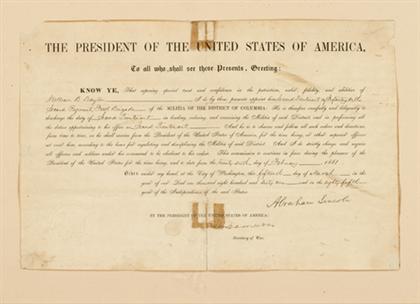 THE PRESIDENT OF THE UNITED STATES OF AMERICA,
To all who shall see these Presents, Greeting:
KNOW YE, That reposing special trust and confidence in the patriotism, valor, fidelity, and abilities of
William B. I do by these presents appoint him Second Lieutenant of Infantry in the
Second Regiment, First Brigade of the MILITIA OF THE DISTRICT OF COLUMBIA: He is therefore carefully and diligently to
discharge the duty of Second Lieutenant in leading, ordering and exercising the Militia of said District, and in performing all
the duties appertaining to his office as Second Lieutenant And he is to observe and follow such orders and directions,
from time to time, as he shall receive from the President of the United States of America for the time being, or other superior officers
set over him, according to the laws for regulating and disciplining the Militia of said District. And I do strictly charge and require
all officers and soldiers under his command to be obedient to his orders. This commission to continue in force during the pleasure of the
President of the United States for the time being, and to date from the day of February 1861
GIVEN under my hand at the City of Washington, this fifteenth day of March in the
year of our Lord one thousand eight hundred and sixty one and in the eighty fifth
year of the Independence of the said States.
Abraham Lincoln
BY THE PRESIDENT OF THE UNITED STATES OF AMERICA:
Secretary of War.